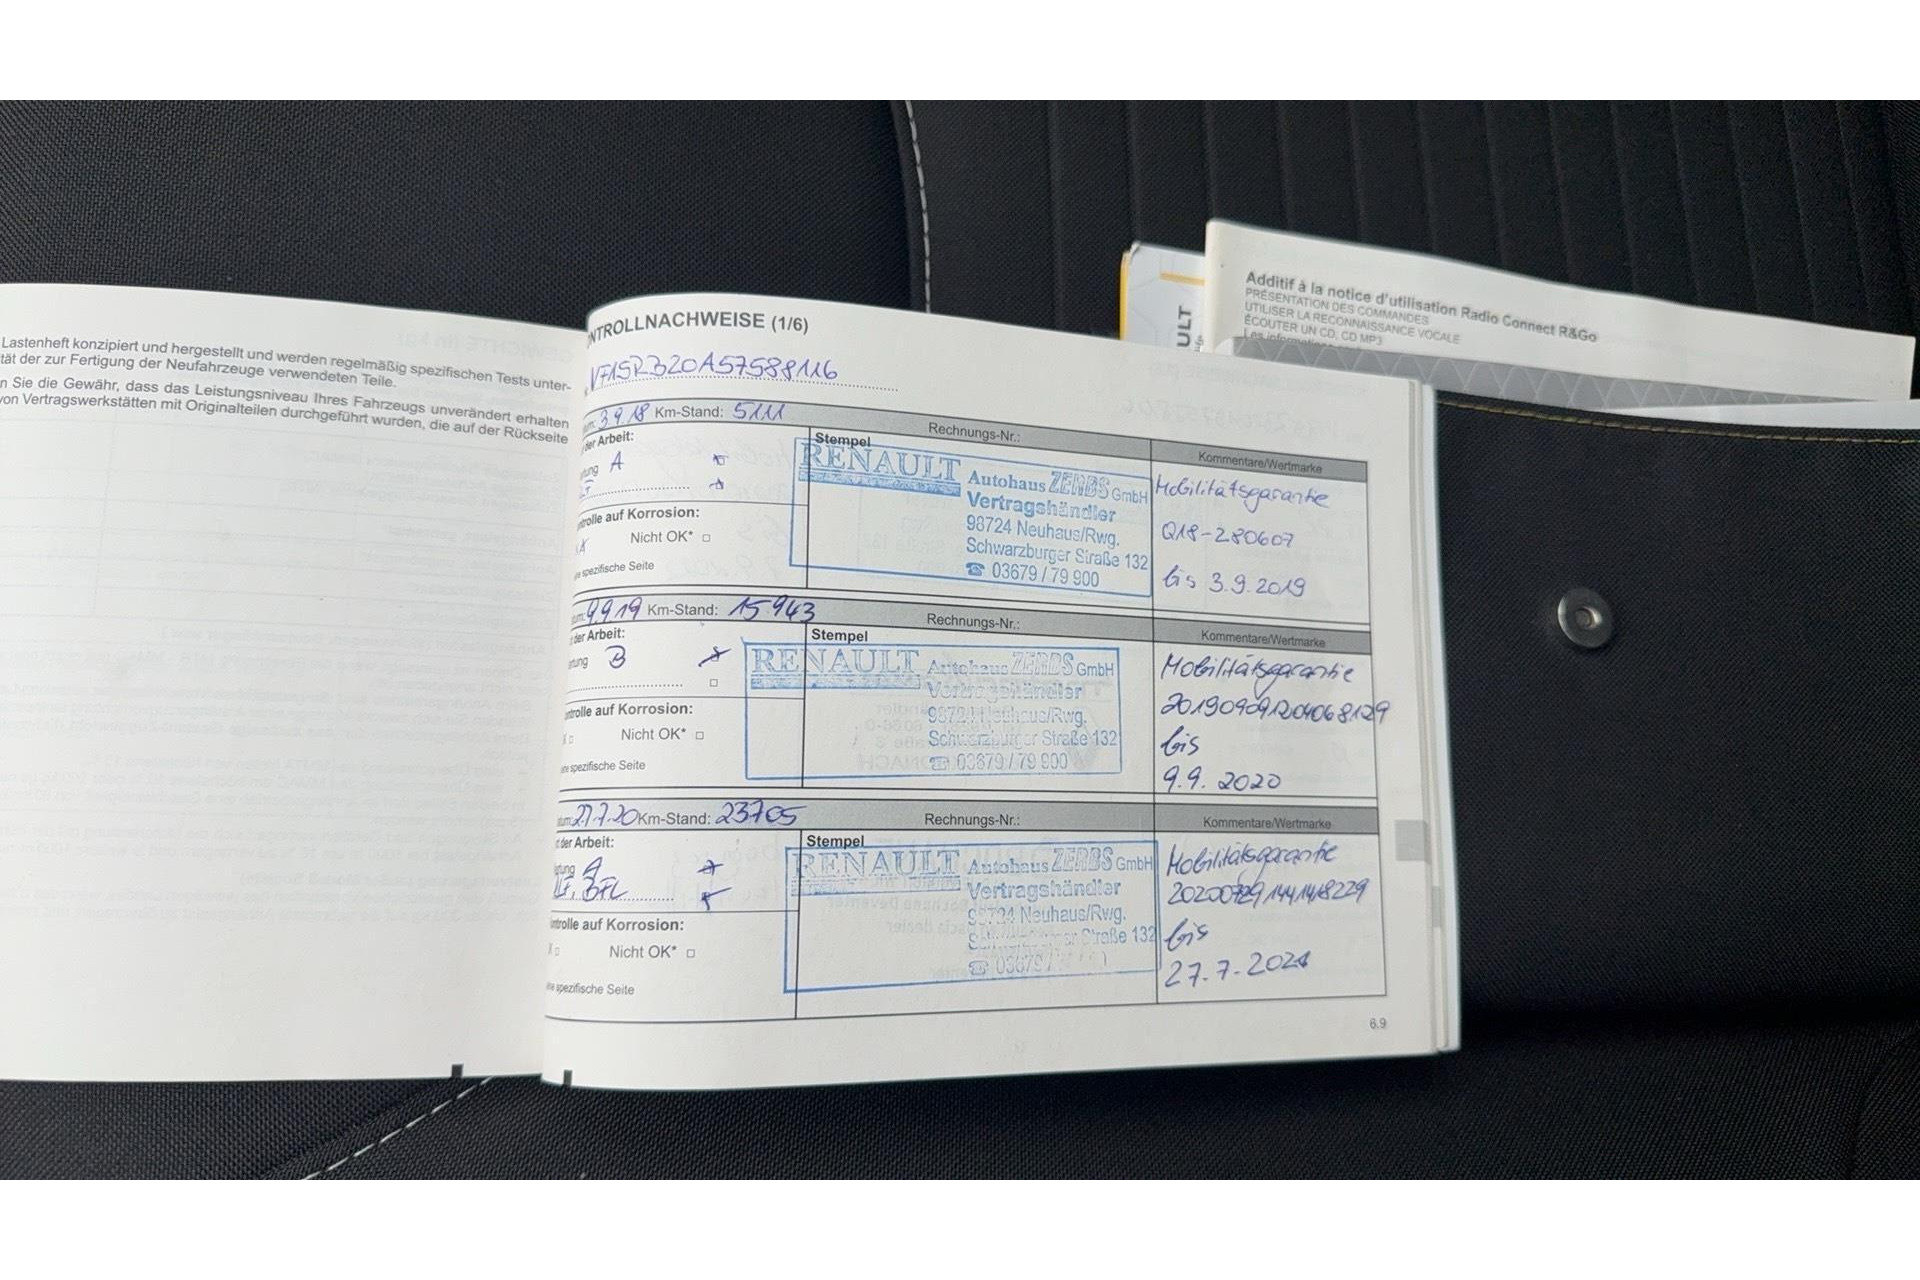 Lastenheft konzipiert und hergestellt und werden regelmäßig spezifischen Tests unter-
tät der zur Fertigung der Neufahrzeuge verwendeten Teile.
n Sie die Gewähr, dass das Leistungsniveau Ihres Fahrzeugs unverändert erhalten
von Vertragswerkstätten mit Originalteilen durchgeführt wurden, die auf der Rückseite
NTROLLNACHWEISE (1/6)
VF15RB20A57588116
tum: 3.9.18 Km-Stand: 5111
Rechnungs-Nr.:
der Arbeit:
Stempel
Kommentare/Wertmarke
tung A
RENAULT Autohaus ZERBS GmbH
Vertragshändler
98724 Neuhaus/Rwg.
Schwarzburger Straße 132
☎ 03679 / 79 900
Mobilitätsgarantie
Q18-280607
bis 3.9.2019
ntrolle auf Korrosion:
Nicht OK*
ne spezifische Seite
tum: 9.9.19 Km-Stand: 15943
Rechnungs-Nr.:
t der Arbeit:
Stempel
Kommentare/Wertmarke
rtung B
RENAULT Autohaus ZERBS GmbH
Vertragshändler
98724 Neuhaus/Rwg.
Schwarzburger Straße 132
☎ 03679 / 79 900
Mobilitätsgarantie
201909091204068129
bis
9.9.2020
ontrolle auf Korrosion:
Nicht OK*
ine spezifische Seite
tum: 27.7.20 Km-Stand: 23705
Rechnungs-Nr.:
t der Arbeit:
Stempel
Kommentare/Wertmarke
artung A
BFL
RENAULT Autohaus ZERBS GmbH
Vertragshändler
98724 Neuhaus/Rwg.
Straße 132
☎ 03679 /
Mobilitätsgarantie
bis
27.7.2021
ontrolle auf Korrosion:
Nicht OK*
ine spezifische Seite
6.9
ULT
Additif à la notice d'utilisation Radio Connect R&Go
PRÉSENTATION DES COMMANDES
UTILISER LA RECONNAISSANCE VOCALE
ÉCOUTER UN CD, CD MP3
Les informations